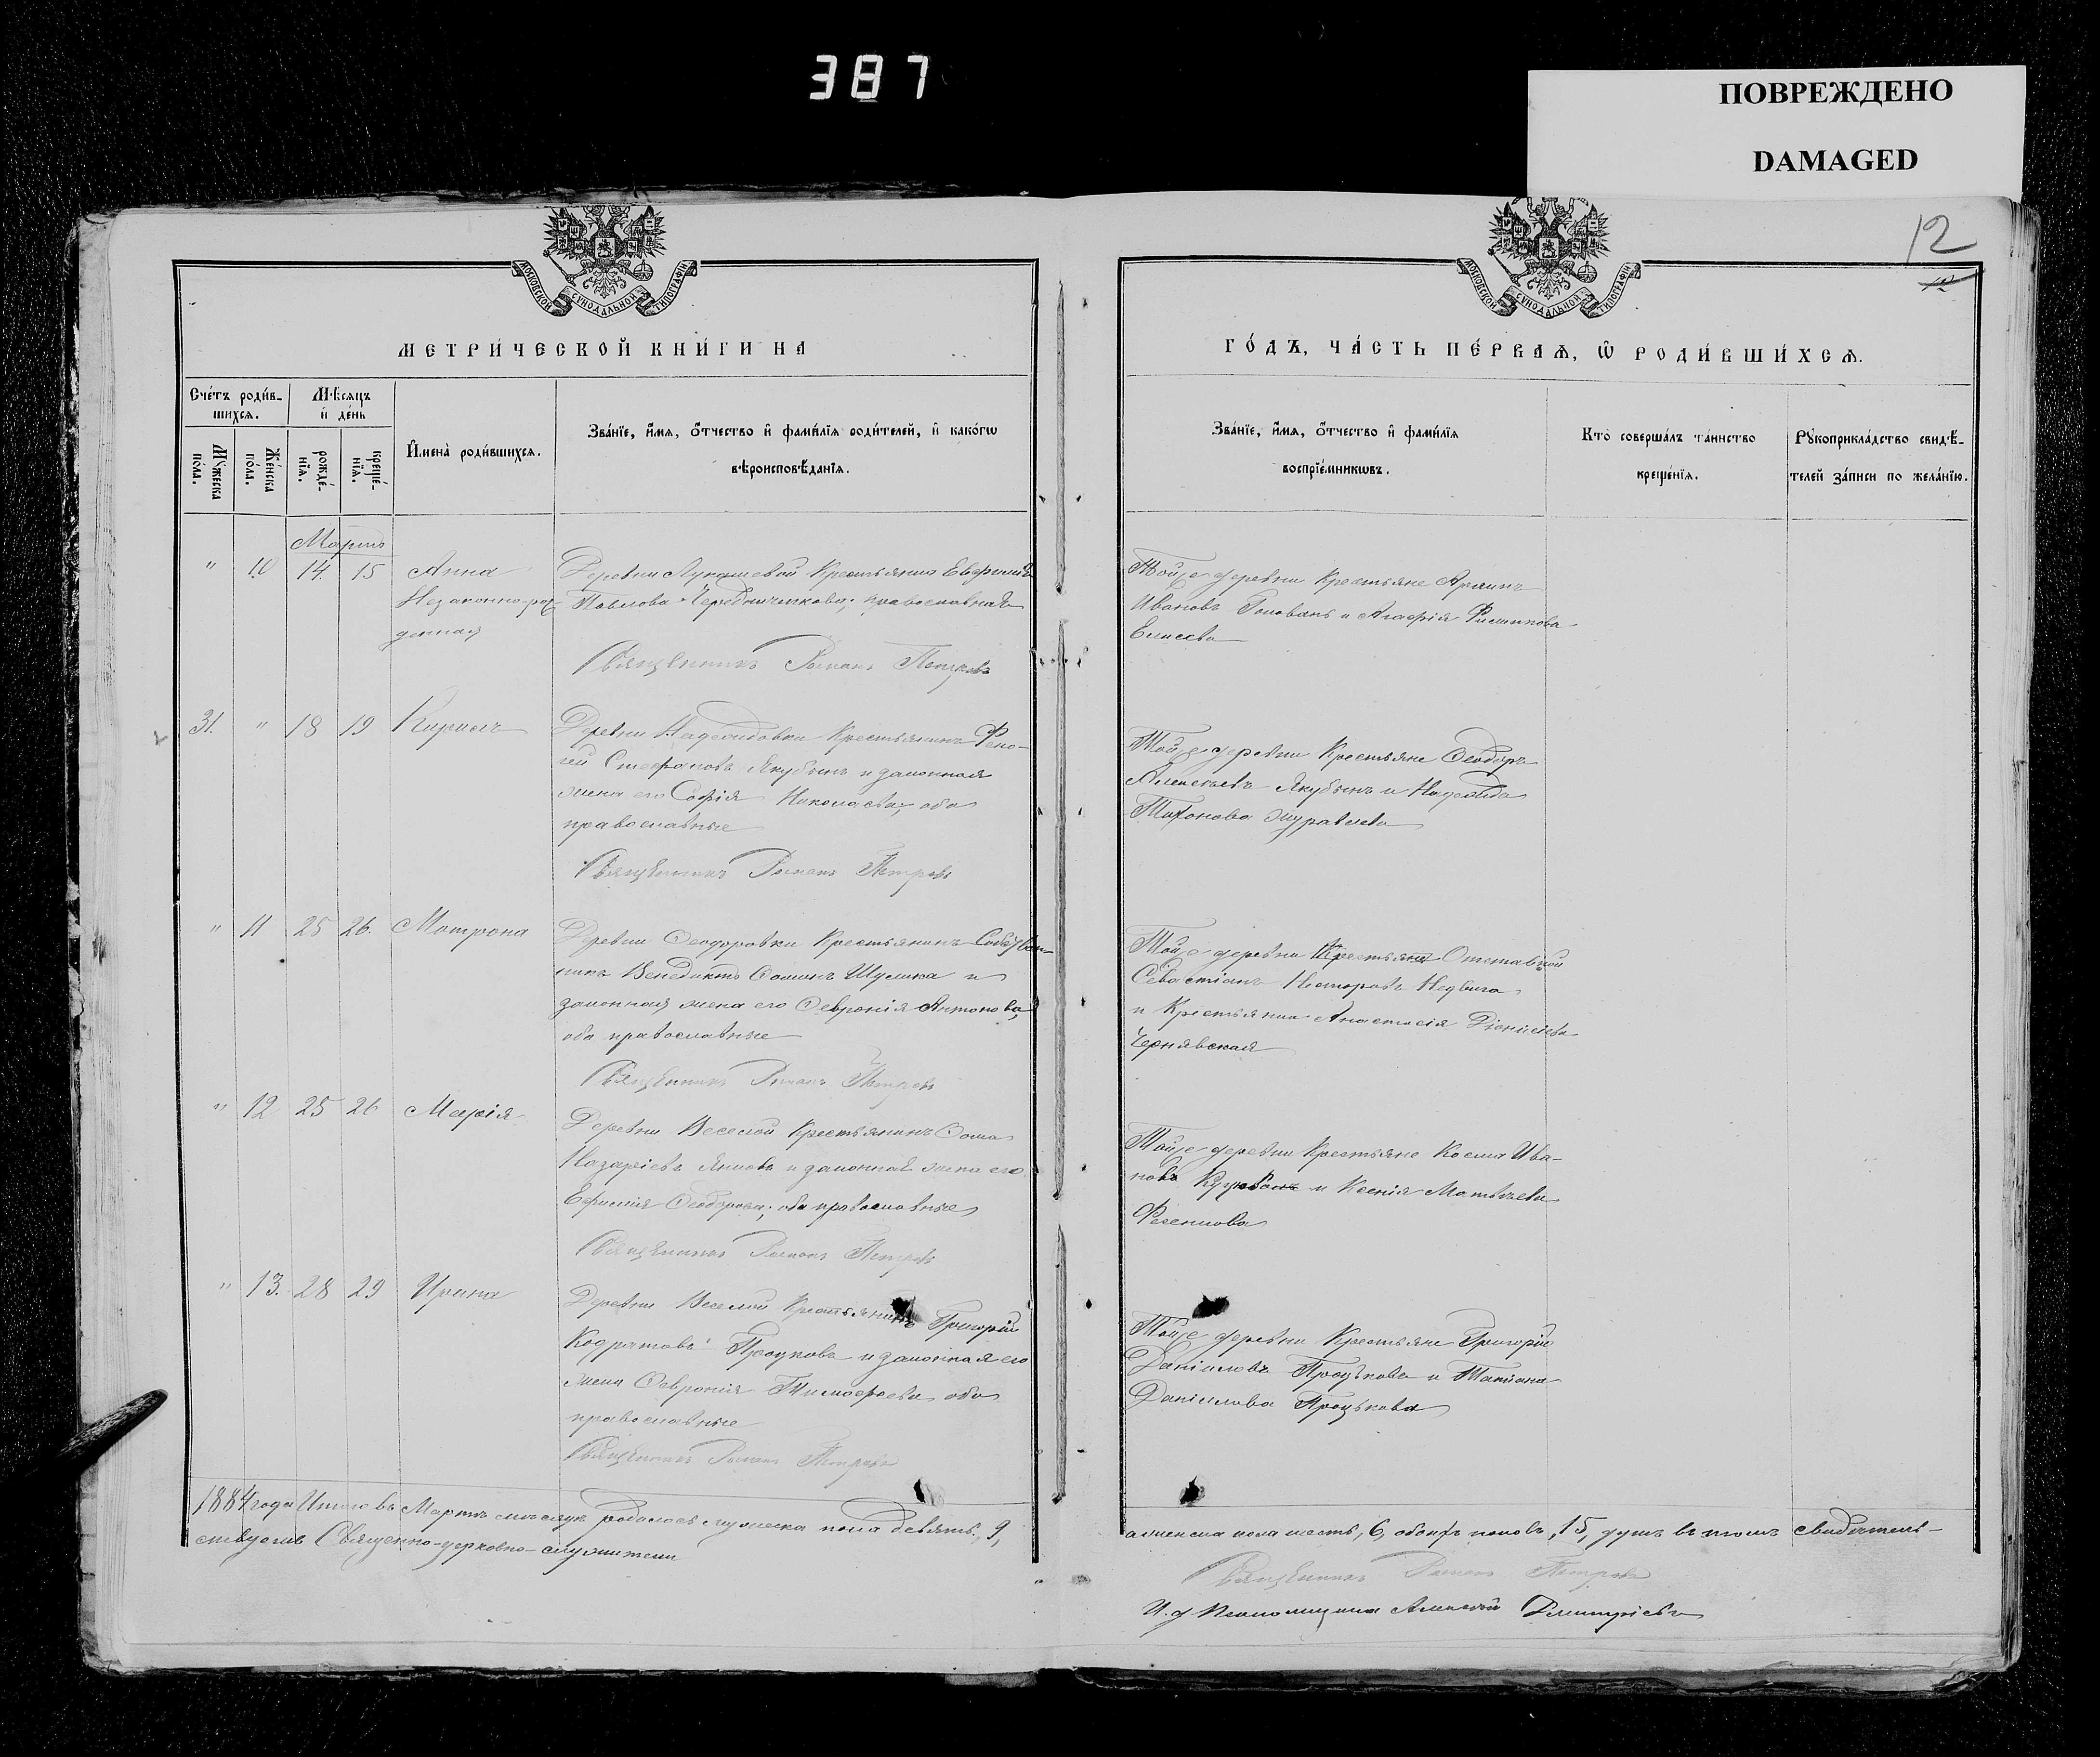 387
ПОВРЕЖДЕНО
DAMAGED
12
МОСКОВСКОЙ СѴНОДАЛЬНОЙ ТИПОГРАФІИ
МЕТРИ́ЧЕСКОЙ КНИ́ГИ НА
Сче́тъ роди́в-
шихся.
Мѣ́сяцъ
и҆ де́нь
Мꙋ́жеска
по́ла.
Же́нска
по́ла.
рожде́-
нїя.
креще́-
нїя.
И҆мена̀ роди́вшихся.
Зва́нїе, и҆́мя, ѻ҆́тчество и҆ фами́лїя роди́телей, и҆ како́гѡ
вѣроисповѣ́данїя.
Мартъ
" 10 14 15 Анна
Незаконно-рож-
денная
Деревни Лукашевой Крестьянка Евфимія
Павлова Чередниченкова, православная
Священникъ Романъ Петровъ
31. " 18 19 Кирилъ
Деревни Надеждовки Крестьянинъ
Стефановъ Якубинъ и законная
жена его Софія Николаева, оба
православные
Священникъ Романъ Петровъ
" 11 25 26. Матрона
Деревни Ѳеодоровки Крестьянинъ Собствен-
никъ Венедиктъ Ѳоминъ Шулика и
законная жена его Ѳевронія Антонова,
оба православные
Священникъ Романъ Петровъ
" 12 25 26 Марія
Деревни Веселой Крестьянинъ Ѳома
Назаріевъ и законная жена его
Евфимія Ѳеодорова, оба православные
Священникъ Романъ Петровъ
" 13. 28 29 Ирина
Деревни Веселой Крестьянинъ Григорій
Кодратовъ Процковъ и законная его
жена Ѳевронія Тимоѳеева, оба
православные
Священникъ Романъ Петровъ
1884 года Итого въ Мартѣ мѣсяцѣ родилось мужеска пола девять, 9,
ствуемъ Священно-церковно-служители
МОСКОВСКОЙ СѴНОДАЛЬНОЙ ТИПОГРАФІИ
ГО́ДЪ, ЧА́СТЬ ПЕ́РВАЯ, Ѡ҆ РОДИ́ВШИХСЯ.
Зва́нїе, и҆́мя, ѻ҆́тчество и҆ фами́лїя
воспрїе́мникѡвъ.
Кто̀ соверша́лъ та́инство
креще́нїя.
Рꙋкоприкла́дство свидѣ́-
телей за́писи по жела́нїю.
Той же деревни Крестьяне
Ивановъ Голованъ и Агафія Филипова
Елисеева
Той же деревни Крестьяне Ѳеодоръ
Алексеевъ Якубинъ и Надежда
Тихонова Журавлева
Той же деревни Отставной
Севастіанъ Несторовъ Недвига
и Крестьянка Анастасія Діонисіева
Чернявская
Той же деревни Крестьяне Косма Ива-
новъ и Ксенія Матвѣева
Той же деревни Крестьяне Григорій
Даніиловъ Процковъ и Татіана
Даніилова Процкова
а женска пола шесть, 6, обоихъ половъ, 15, душъ въ томъ свидѣтель-
Священникъ Романъ Петровъ
И. д Псаломщика Алексѣй Димитріевъ